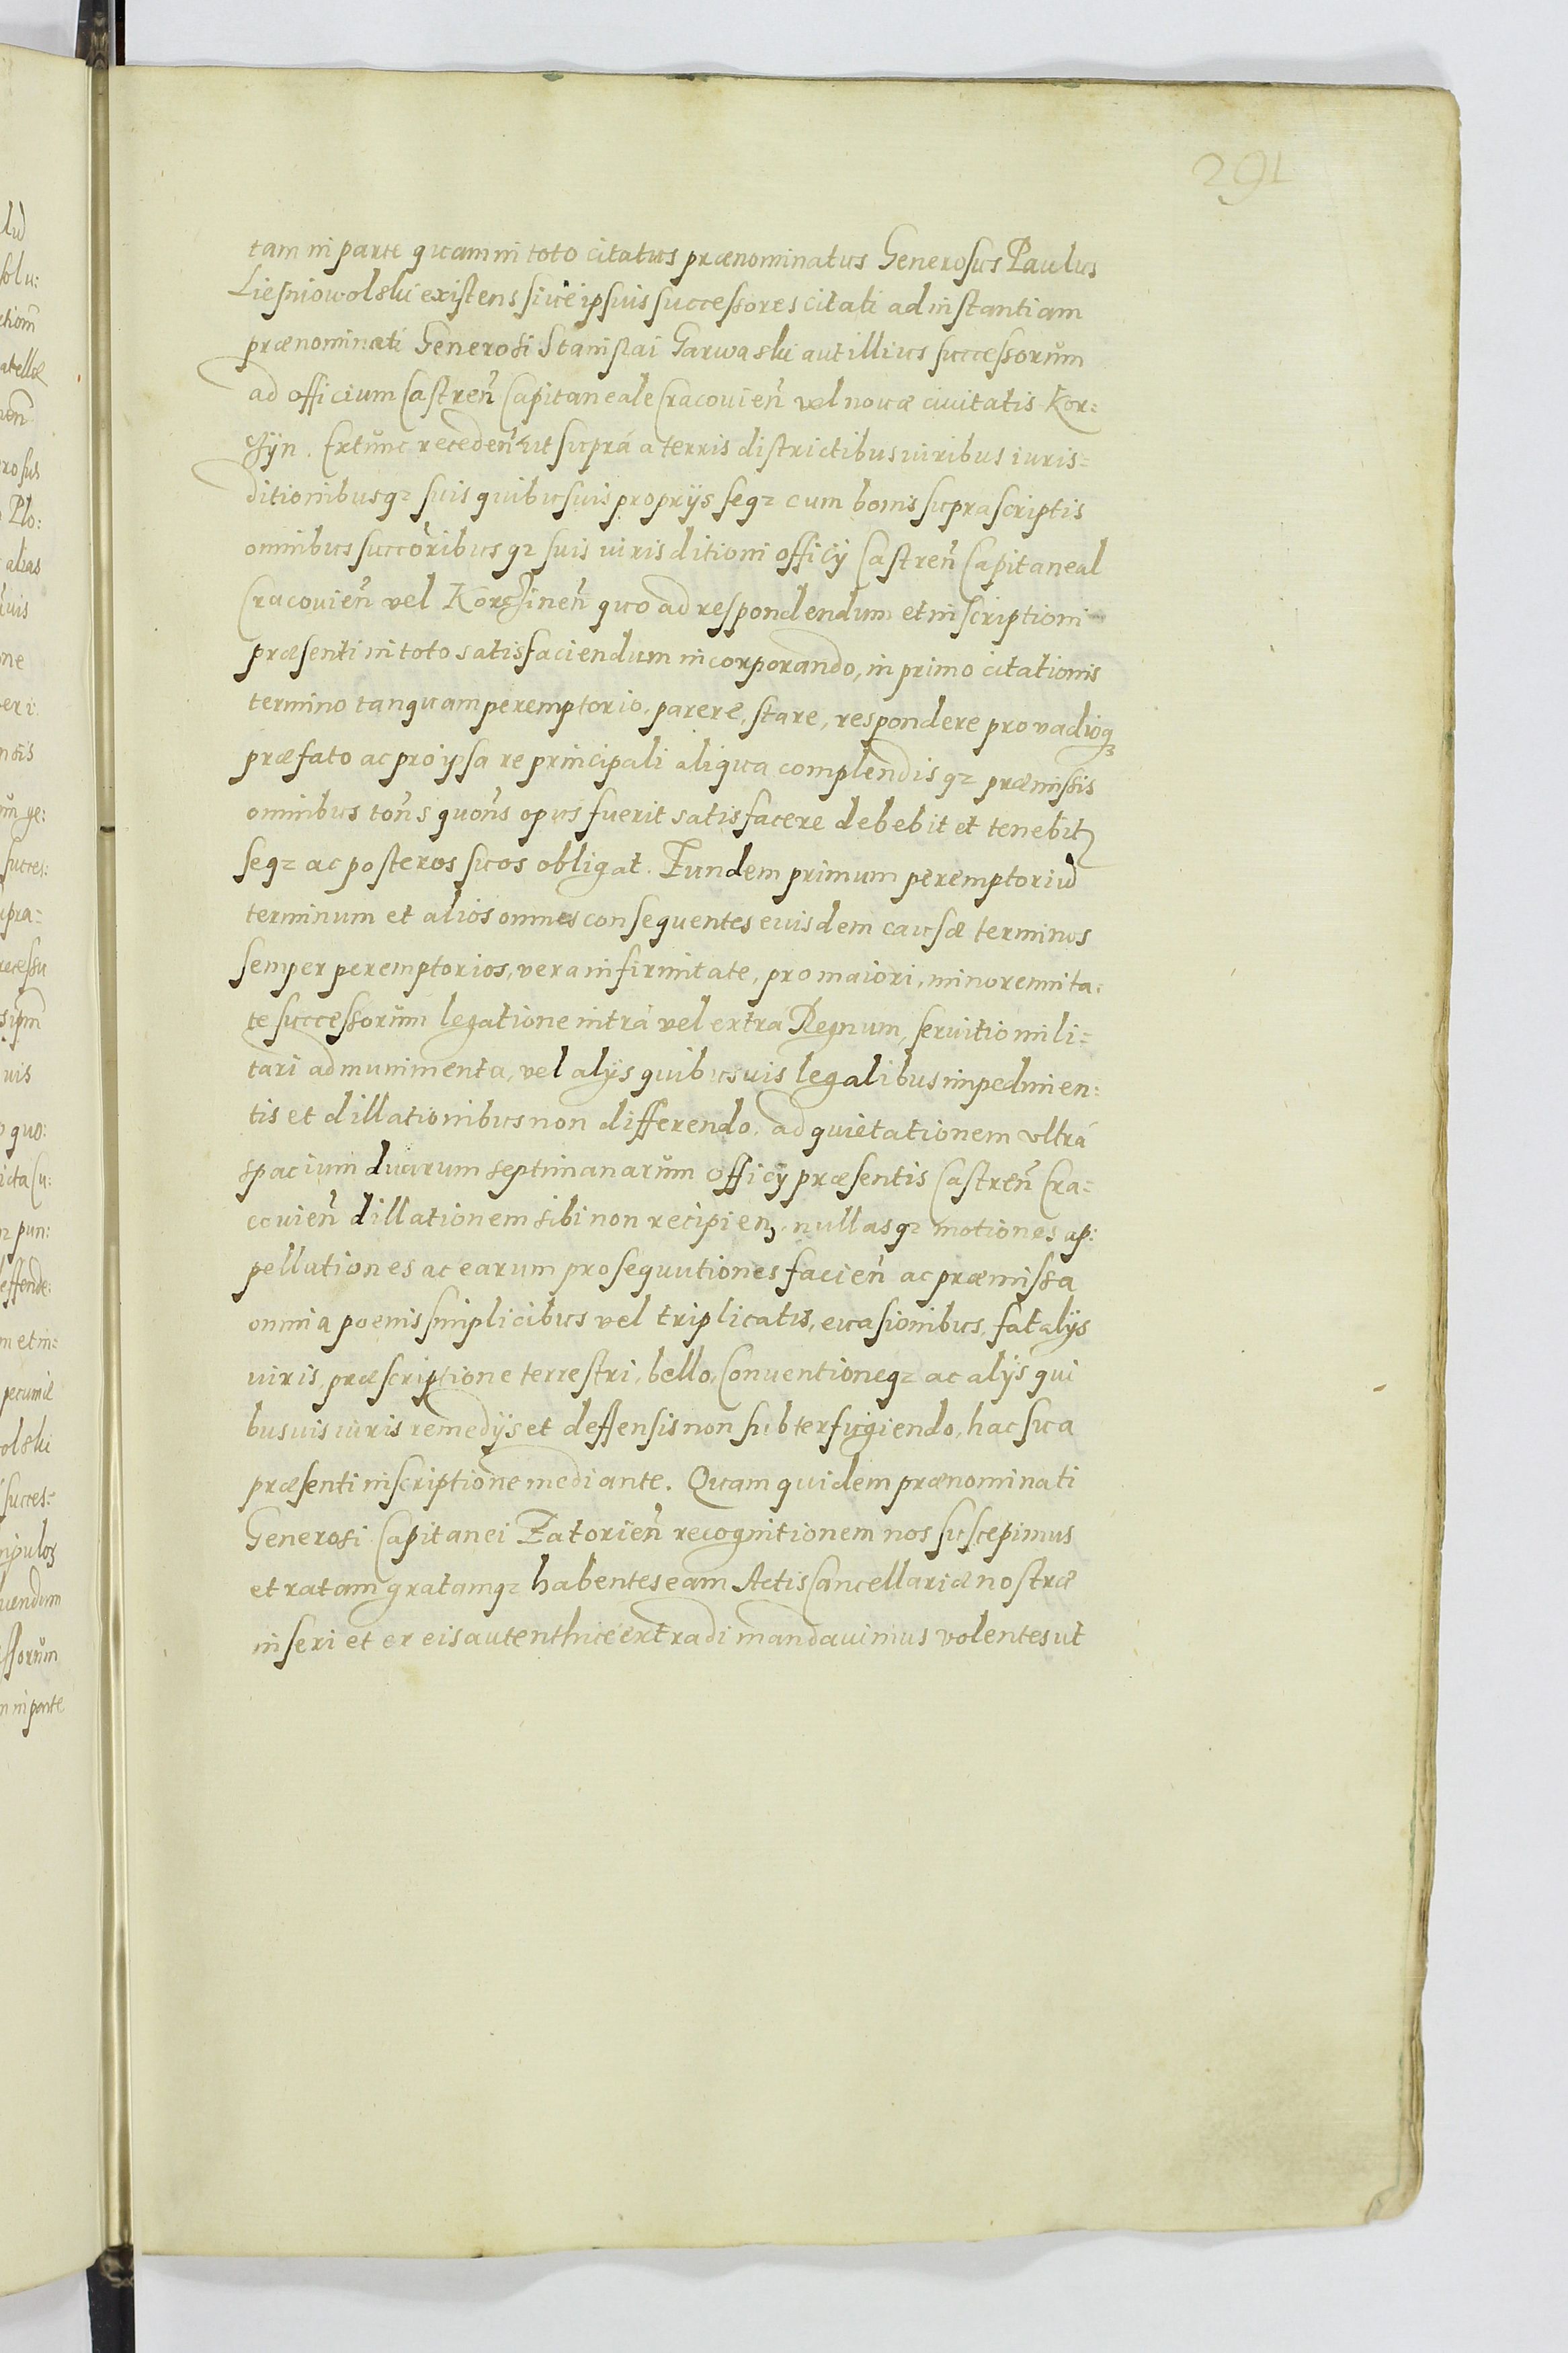 291
tam in parte quam in toto citatus prænominatus Generosus Paulus
Liesniowolski existens siue ipsius successores citati ad instantiam
prænominati Generosi Stanislai Garwaski aut illius successorum
ad officium Castren̄ Capitaneale Cracouien̄ vel nouæ ciuitatis Kor=
czÿn. Ex tunc receden̄ ut suprà a terris districtibus iuribus iuris=
ditionibusq₃ suis quibusuis proprÿs seq₃ cum bonis suprascriptis
omnibus succōribusq₃ suis iurisditioni officÿ Castren̄ Capitaneal
Cracouien̄ vel Korczinen̄ quo ad respondendum et inscriptioni
præsenti in toto satisfaciendum incorporando, in primo citationis
termino tanquam peremptorio, parere, stare, respondere pro vadioq₃
præfato ac pro ipsa re principali aliqua complendisq₃ præmissis
omnibus ton̄s quon̄s opus fuerit satisfacere debebit et tenebit̃
seq₃ ac posteros suos obligat. Eundem primum peremptoriu̅
terminum et alios omnes consequentes eiusdem causæ terminos
semper peremptorios, vera infirmitate, pro maiori, minorennita=
te successorum legatione intrà vel extra Regnum, seruitio mili=
tari ad munimenta, vel alÿs quibusuis legalibus impedimen=
tis et dillationibus non differendo, ad quietationem vltrà
spacium duarum septimanarum officÿ præsentis Castren̄ Cra=
couien̄ dillationem sibi non recipien₃, nullasq₃ motiones ap:
pellationes ac earum prosequutiones facien̄ ac præmissa
omnia poenis simplicibus vel triplicatis, euasionibus, fatalÿs
iuris, præscriptione terrestri, bello, Conuentioneq₃ ac alÿs qui
busuis iuris remedÿs et deffensis non subterfugiendo, hac sua
præsenti inscriptione mediante. Quam quidem prænominati
Generosi Capitanei Zatorien̄ recognitionem nos suscepimus
et ratam gratamq₃ habentes eam Actis Cancellariæ nostræ
inseri et ex eis autenthice extradi mandauimus volentes ut